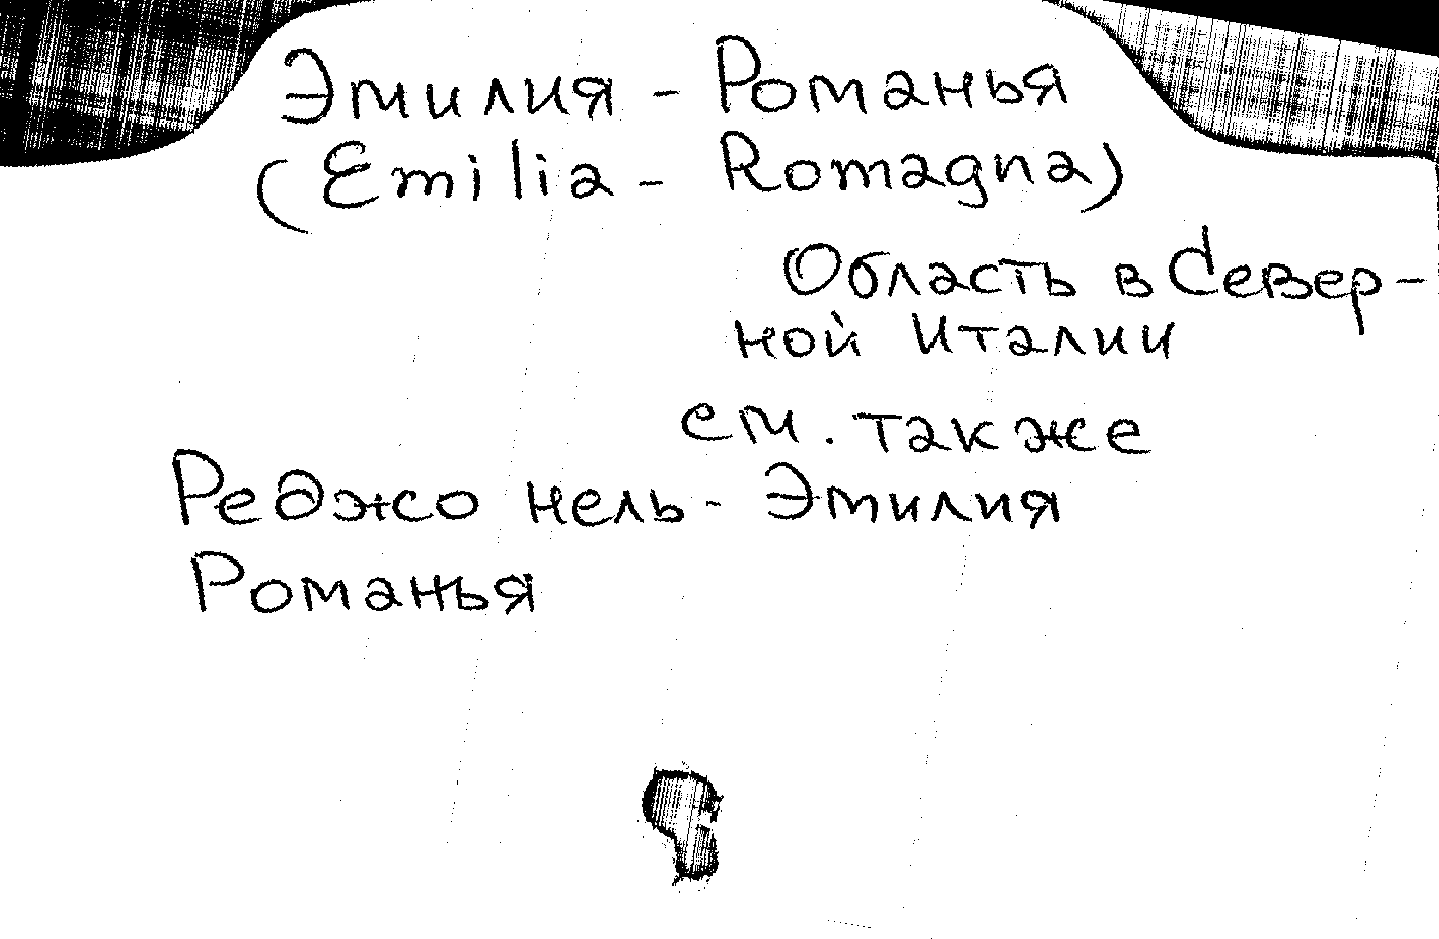 Эмилия - Романья
(Emilia - Romagna)
Область в Север-
ной Италии
см. также
Реджо нель - Эмилия
Романья